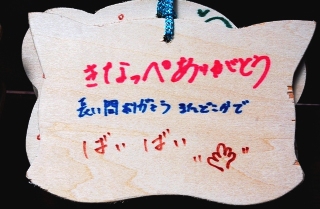 きなっぺありがとう
長い間ありがとう またどこかで
ばい ばい